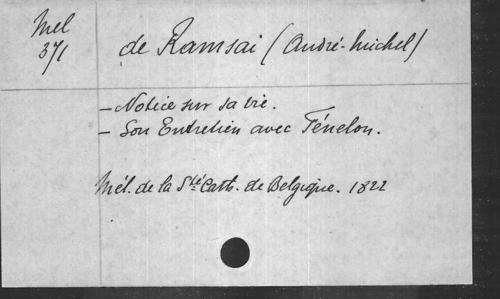 Mel
371
de Ramsai (André-Michel)
- Notice sur sa vie.
- Son Entretien avec Fénelon.
Mél. de la Sté Cath. de Belgique. 1822